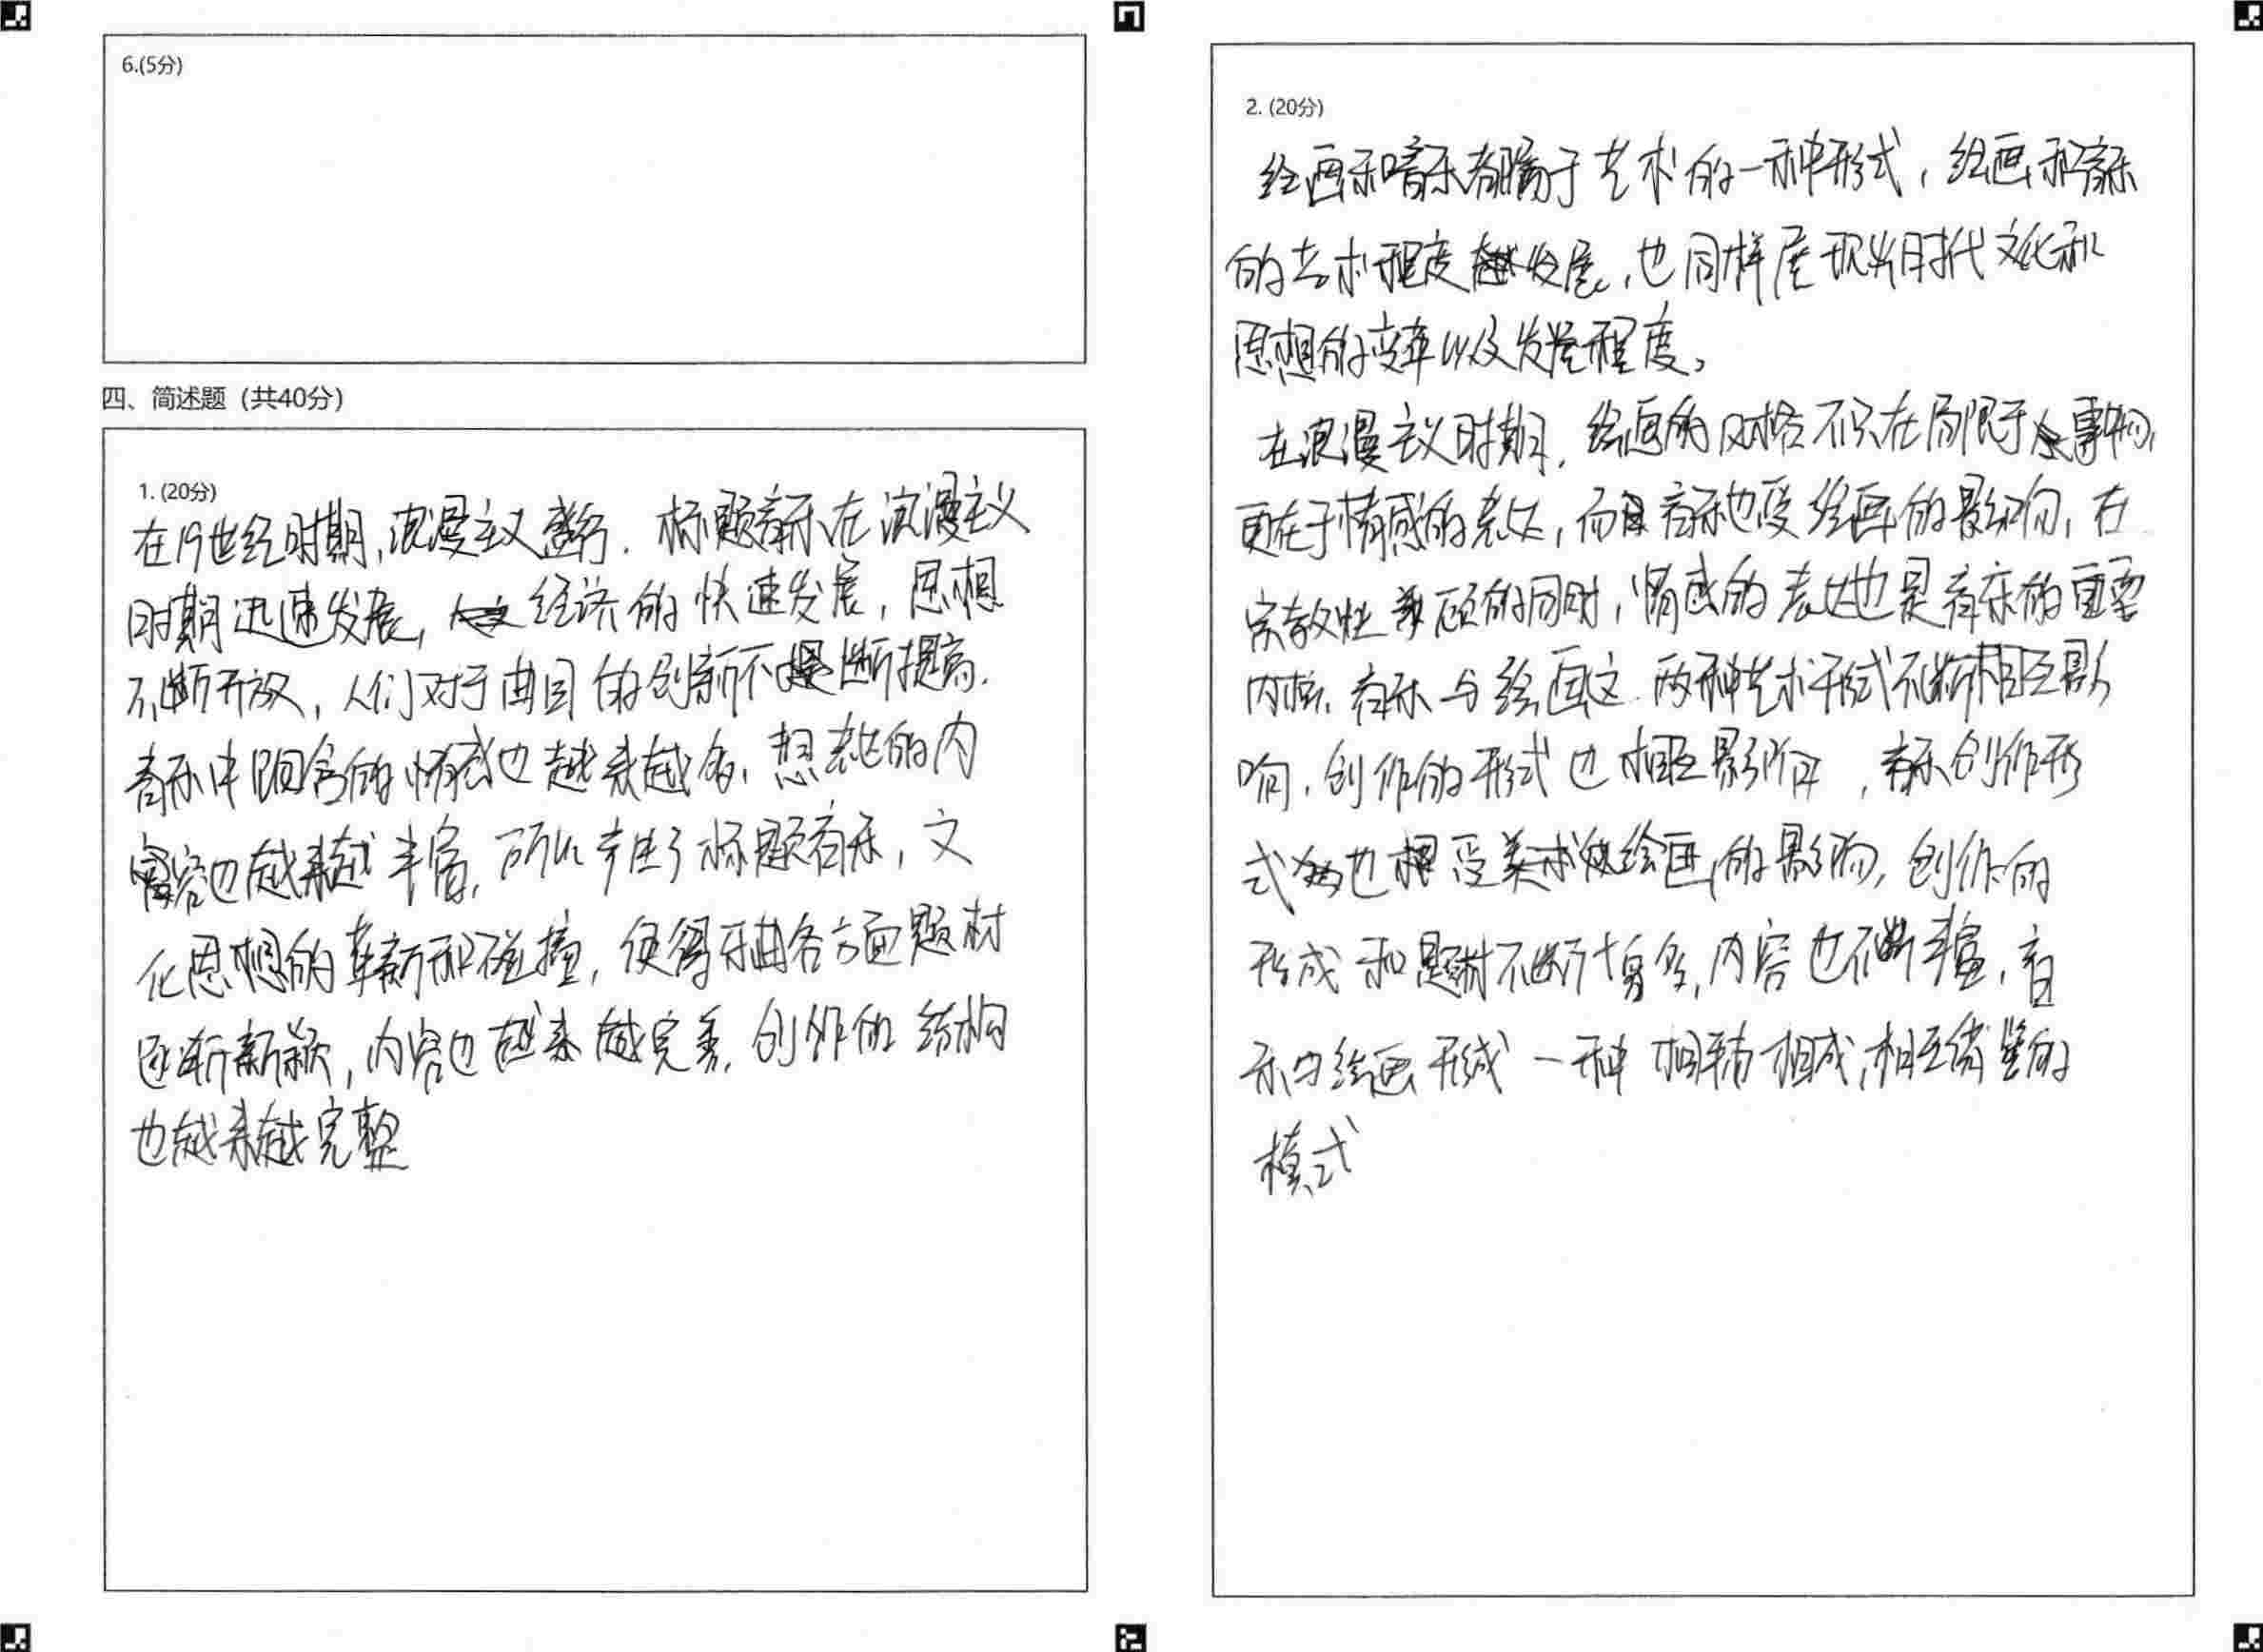 6.(5分)
四、简述题（共40分）
1. (20分)
在19世纪时期,浪漫主义盛行.标题音乐在浪漫主义
时期迅速发展,经济的快速发展,思想
不断开放,人们对于曲目的创新不断提高.
音乐中蕴含的情感也越来越多,想表达的内
容也越来越丰富,所以产生了标题音乐,文
化思想的革新和碰撞,使得乐曲各方面题材
逐渐新颖,内容也越来越完善,创作的结构
也越来越完整
2. (20分)
绘画和音乐都属于艺术的一种形式,绘画和音乐
的艺术程度发展,也同样展现出时代文化和
思想的变革以及发展程度。
在浪漫主义时期,绘画的风格不只在局限于事物,
更在于情感的表达,而音乐也受绘画的影响,在
宗教性兼顾的同时,情感的表达也是音乐的重要
内核,音乐与绘画这两种艺术形式不断相互影
响,创作的形式也相互影响,音乐创作形
式也受绘画的影响,创作的
形成和题材不断增多,内容也不断丰富,音
乐与绘画形成一种相辅相成,相互借鉴的
模式